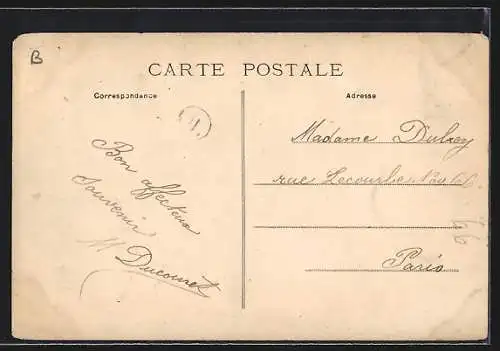 B
CARTE POSTALE
Correspondance
Adresse
Bon affectueux
Souvenir
M Ducouret
Madame Dubroy
rue Lecourbe No 66
66
Paris